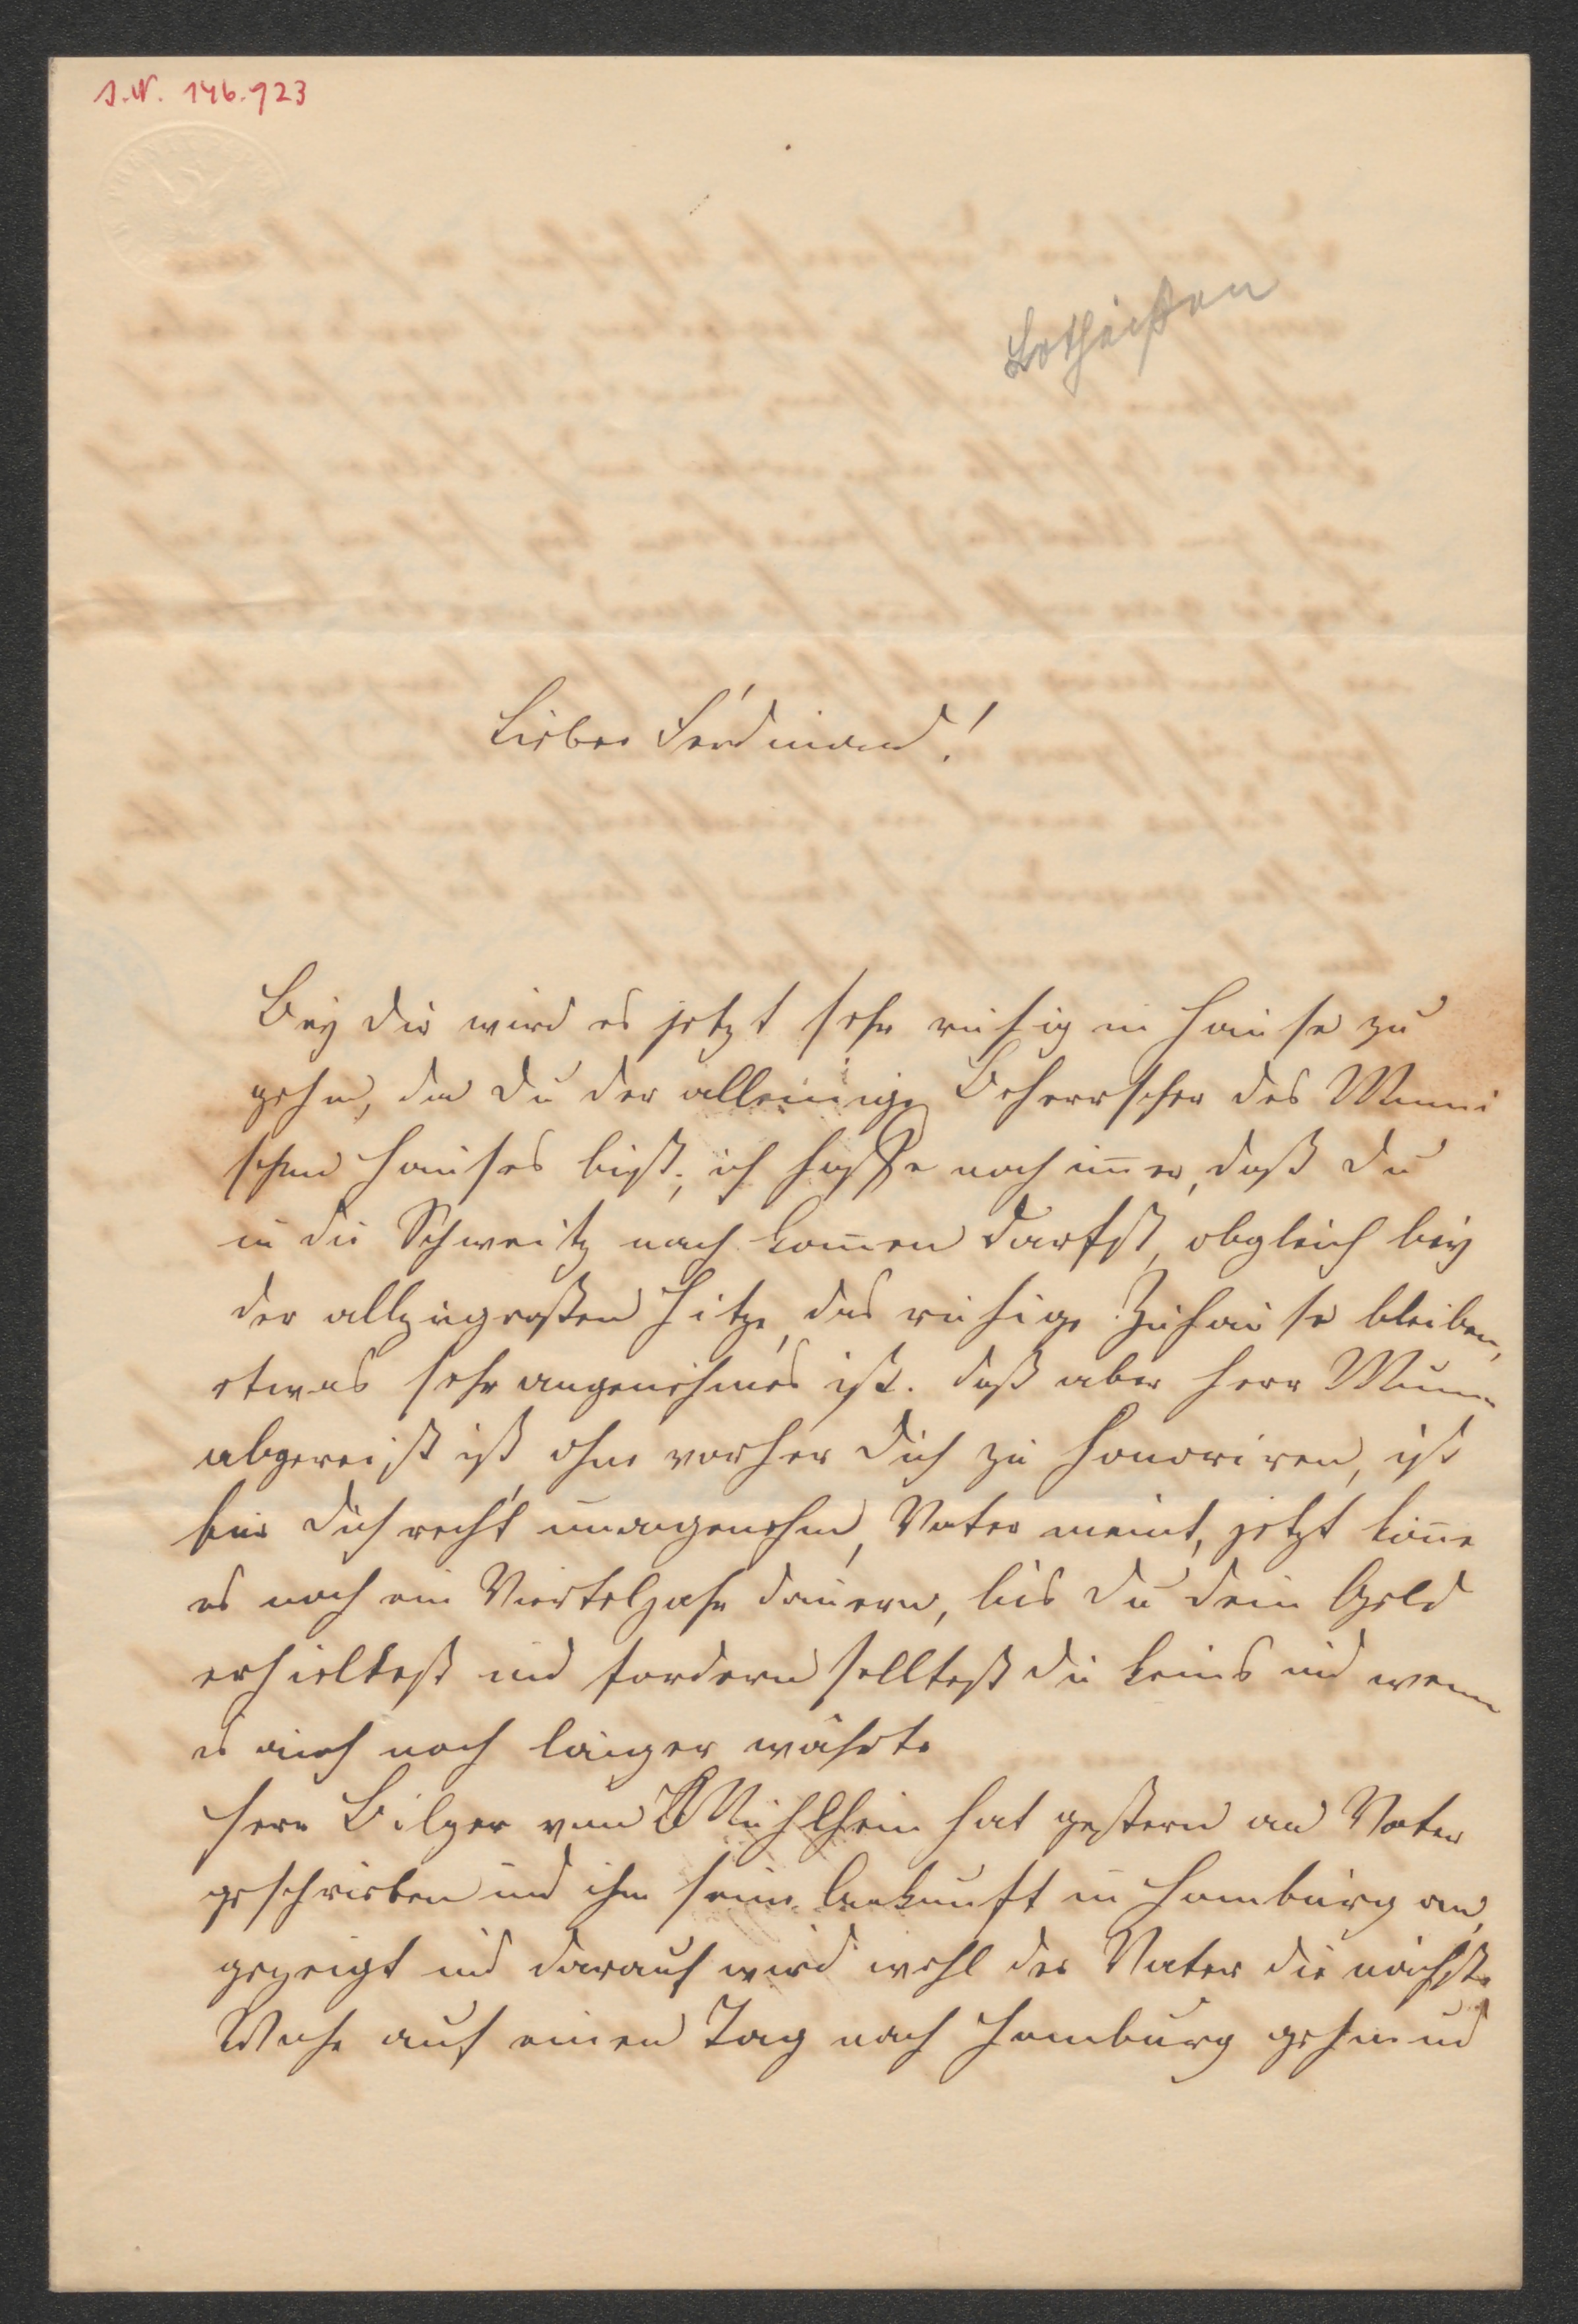 I.N. 146.923
Lotheißen
Lieber Ferdinand!
Bey dir wird es jetzt sehr ruhig im Hause zu
gehn, da du der alleinige Beherrscher des Mumm
schen Hauses bist; ich hoffe noch im̄er, daß du
in die Schweitz nach kom̄en darfst, obgleich bey
der allzugroßen Hitze, das ruhige Zuhause bleiben,
etwas sehr angenehmes ist. daß aber Herr Mumm
abgereist ist ohne vorher dich zu honoriren, ist
für dich recht unangenehm, Vater meint, jetzt kön̄e
es noch ein Vierteljahr dauern, bis du dein Geld
erhieltest und fordern solltest du keins und wenn
es auch noch länger währte
Herr Bilger von Mühlheim hat gestern an Vater
geschrieben und ihm seine Ankunft in Homburg an,
gezeigt und darauf wird wohl der Vater die nächste
Woche auf einen Tag nach Homburg gehn und